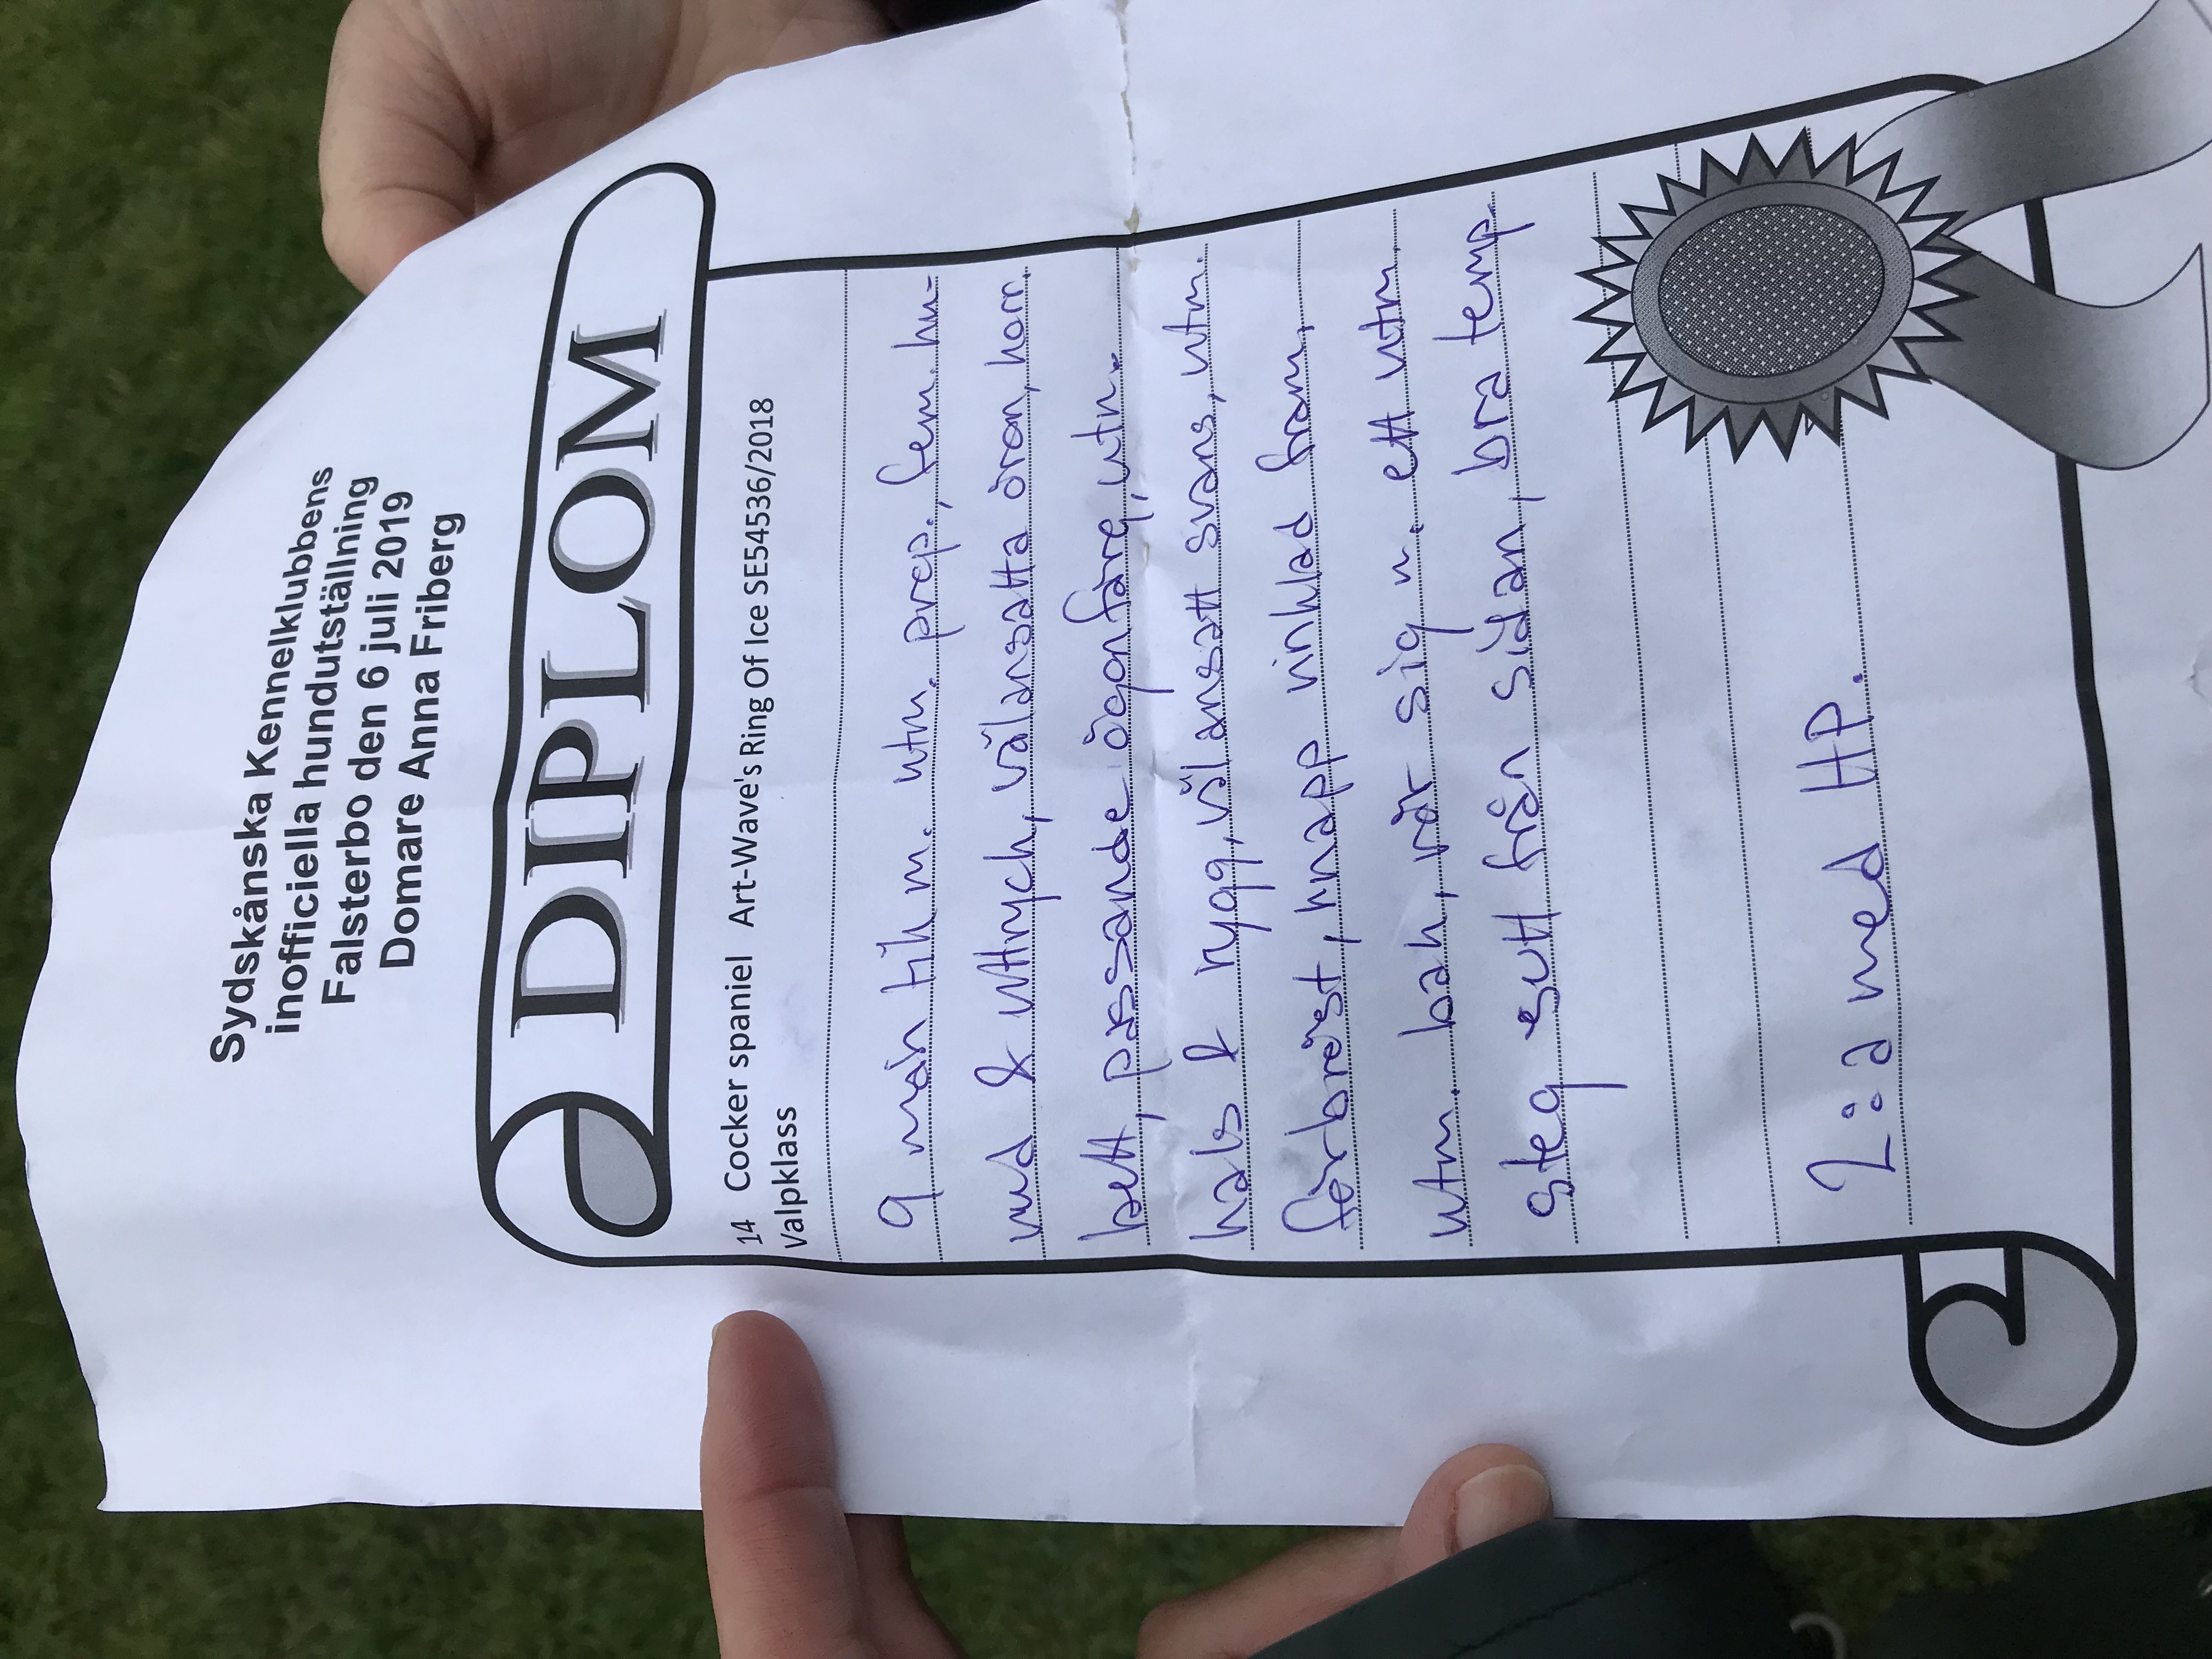 Sydskånska Kennelklubbens
inofficiella hundutställning
Falsterbo den 6 juli 2019
Domare Anna Friberg
DIPLOM
14 Cocker spaniel Art-Wave's Ring Of Ice SE54536/2018
Valpklass
9 mån tik m. utm. prop., fem. hu-
vud & uttryck, välansatta öron, korr.
bett, passande ögonfärg, utm.
hals & rygg, väl ansatt svans, utm.
förbröst, knapp vinklad fram,
utm. bak, rör sig m. ett utm.
steg sett från sidan, bra temp.
2:a med HP.